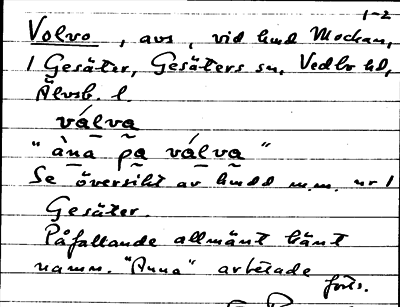 1-2
Volvo, avs, vid hmd Mochan,
1 Gesäter, Gesäters sn, Vedbo hd,
Älvsb. l.
válva
"àna pa válva"
Se översikt av hmdd m.m. nr 1
Gesäter.
Påfallande allmänt känt
namn. "Anna" arbetade
forts.